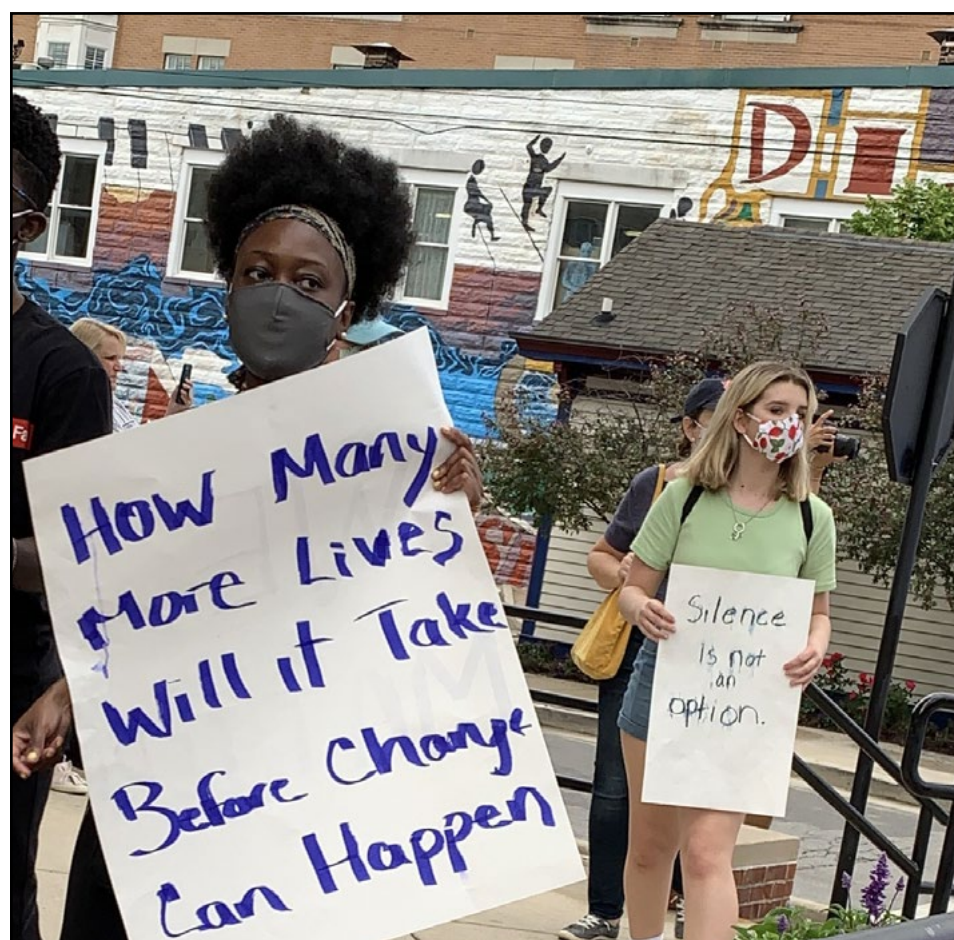 How Many
More Lives
Will it Take
Before Change
Can Happen
Silence
is not
an
option.
DI
Fe